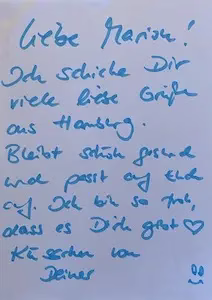 Liebe Marion!
Ich schicke Dir
viele liebe Grüße
aus Hamburg.
Bleibt schön gesund
und passt auf Euch
auf. Ich bin so froh,
dass es Dich gibt ♡
Küsschen von
Deiner